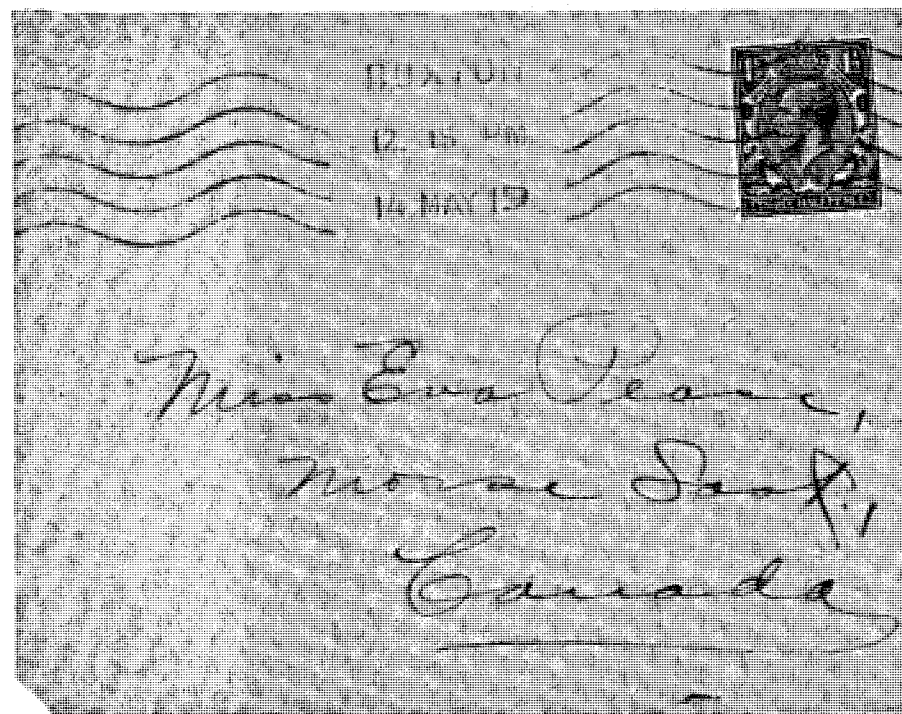 BUXTON
12. 15 PM
14 MAY 19
Miss Eva Pease,
Morse Sask.,
Canada